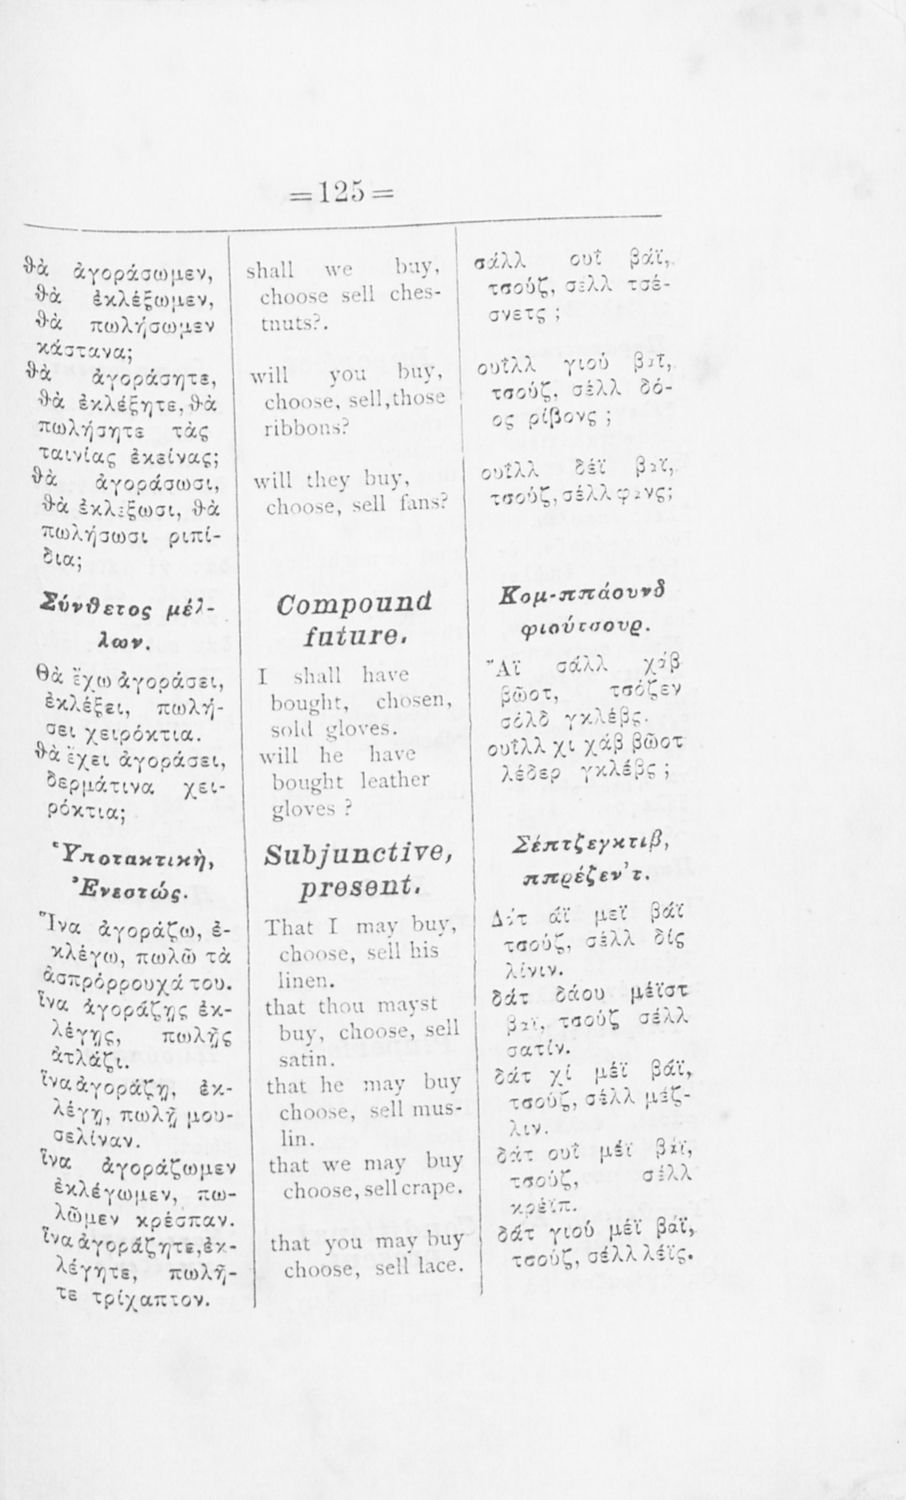 =125=
θὰ ἀγοράσωμεν,
θὰ ἐκλέξωμεν,
θὰ πωλήσωμεν
κάστανα;
θὰ ἀγοράσητε,
θὰ ἐκλέξητε, θὰ
πωλήσητε τὰς
ταινίας ἐκείνας;
θὰ ἀγοράσωσι,
θὰ ἐκλέξωσι, θὰ
πωλήσωσι ριπί-
δια;
Σύνθετος μέλ-
λων.
Θὰ ἔχω ἀγοράσει,
ἐκλέξει, πωλή-
σει χειρόκτια.
θὰ ἔχει ἀγοράσει,
δερμάτινα χει-
ρόκτια;
Ὑποτακτικὴ,
Ἐνεστώς.
Ἵνα ἀγοράζω, ἐ-
κλέγω, πωλῶ τὰ
ἀσπρόρρουχά του.
ἵνα ἀγοράζῃς ἐκ-
λέγῃς, πωλῇς
ἀτλάζι.
ἵνα ἀγοράζῃ, ἐκ-
λέγῃ, πωλῇ μου-
σελίναν.
ἵνα ἀγοράζωμεν
ἐκλέγωμεν, πω-
λῶμεν κρέσπαν.
ἵνα ἀγοράζητε, ἐκ-
λέγητε, πωλῆ-
τε τρίχαπτον.
shall we buy,
choose sell ches-
tnuts?.
will you buy,
choose, sell, those
ribbons?
will they buy,
choose, sell fans?
Compound
future.
I shall have
bought, chosen,
sold gloves.
will he have
bought leather
gloves ?
Subjunctive,
present.
That I may buy,
choose, sell his
linen.
that thou mayst
buy, choose, sell
satin.
that he may buy
choose, sell mus-
lin.
that we may buy
choose, sell crape.
that you may buy
choose, sell lace.
σάλλ ουΐ βάϊ,
τσούζ, σέλλ τσέ-
σνετς ;
ουΐλλ γιού βάϊ,
τσούζ, σέλλ δό-
ος ρίβονς ;
ουΐλλ δέϊ βάϊ,
τσούζ, σέλλ φάνς;
Κομ-ππάουνδ
φιούτσουρ.
Ἄϊ σάλλ χάβ
βῶοτ, τσόζεν
σόλδ γκλέβς.
ουΐλλ χι χάβ βῶοτ
λέδερ γκλέβς ;
Σέπτζεγκτιβ,
ππρέζεν'τ.
Δάτ άϊ μεϊ βάϊ
τσούζ, σέλλ δίς
λίνιν.
δάτ δάου μέϊστ
βάϊ, τσούζ σέλλ
σατίν.
δάτ χί μέϊ βάϊ,
τσούζ, σέλλ μέζ-
λιν.
δάτ ουΐ μέϊ βάϊ,
τσούζ, σέλλ
κρέϊπ.
δάτ γιού μέϊ βάϊ,
τσούζ, σέλλ λέϊς.